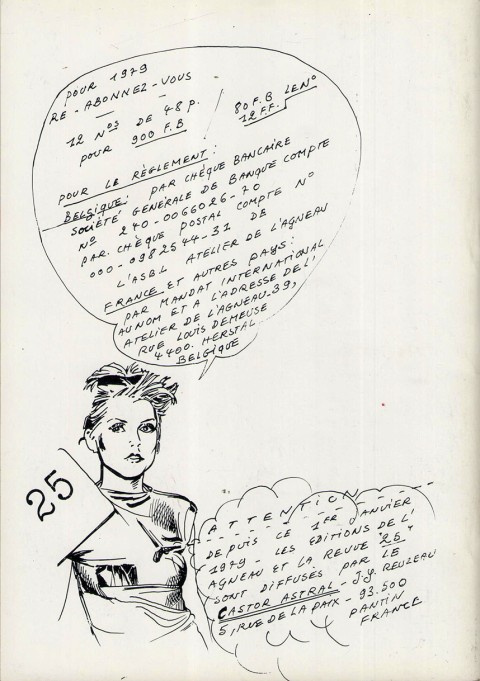 POUR 1979
RE-ABONNEZ-VOUS
12 Nos DE 48 P.
POUR 900 F.B
80 F.B LE No
12 F.F.
POUR LE RÈGLEMENT:
BELGIQUE: PAR CHÈQUE BANCAIRE
SOCIÉTÉ GÉNÉRALE DE BANQUE COMPTE
No 240-0066026-70
PAR CHÈQUE POSTAL COMPTE No
000-0982544-31 DE
L'ASBL ATELIER DE L'AGNEAU
FRANCE ET AUTRES PAYS:
PAR MANDAT INTERNATIONAL
AU NOM ET A L'ADRESSE DE L'
ATELIER DE L'AGNEAU-39,
RUE LOUIS DEMEUSE
4400. HERSTAL
BELGIQUE
25
ATTENTION
DEPUIS CE 1ER JANVIER
1979 - LES EDITIONS DE L'
AGNEAU ET LA REVUE "25"
SONT DIFFUSÉS PAR LE
CASTOR ASTRAL - J.Y. REUZEAU
5, RUE DE LA PAIX - 93.500
PANTIN
FRANCE